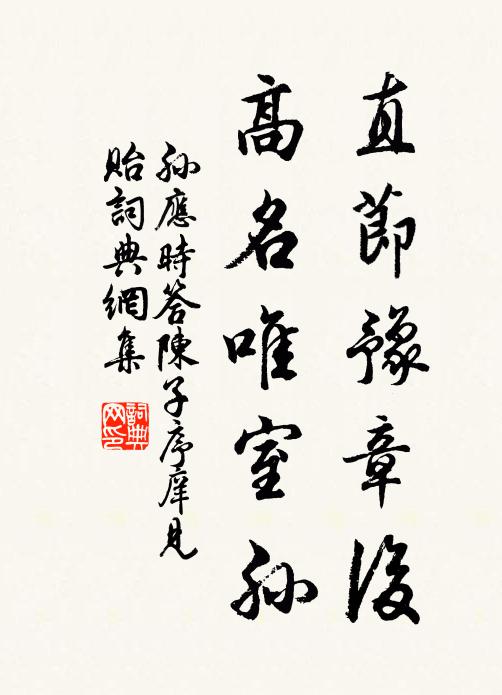 直節豫章後
高名唯室孫
孫應時答陳子序庠見
貽詞典網集
詞典
网印